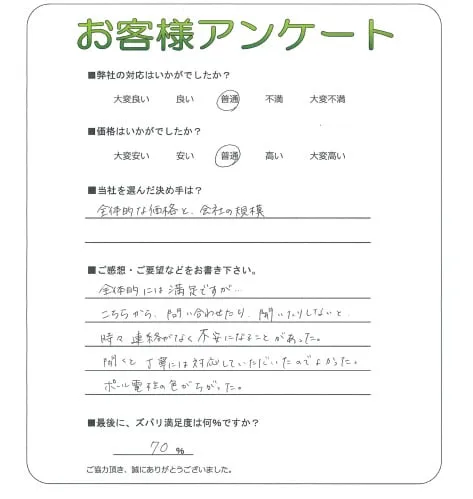 お客様アンケート
■弊社の対応はいかがでしたか？
大変良い 良い 普通 不満 大変不満
■価格はいかがでしたか？
大変安い 安い 普通 高い 大変高い
■当社を選んだ決め手は？
全体的な価格と、会社の規模
■ご感想・ご要望などをお書き下さい。
全体的には満足ですが…
こちらから、問い合わせたり、聞いたりしないと、
時々連絡がなく不安になることがあった。
聞くと丁寧には対応していただいたのでよかった。
ポール電柱の色がちがった。
■最後に、ズバリ満足度は何％ですか？
70 %
ご協力頂き、誠にありがとうございました。